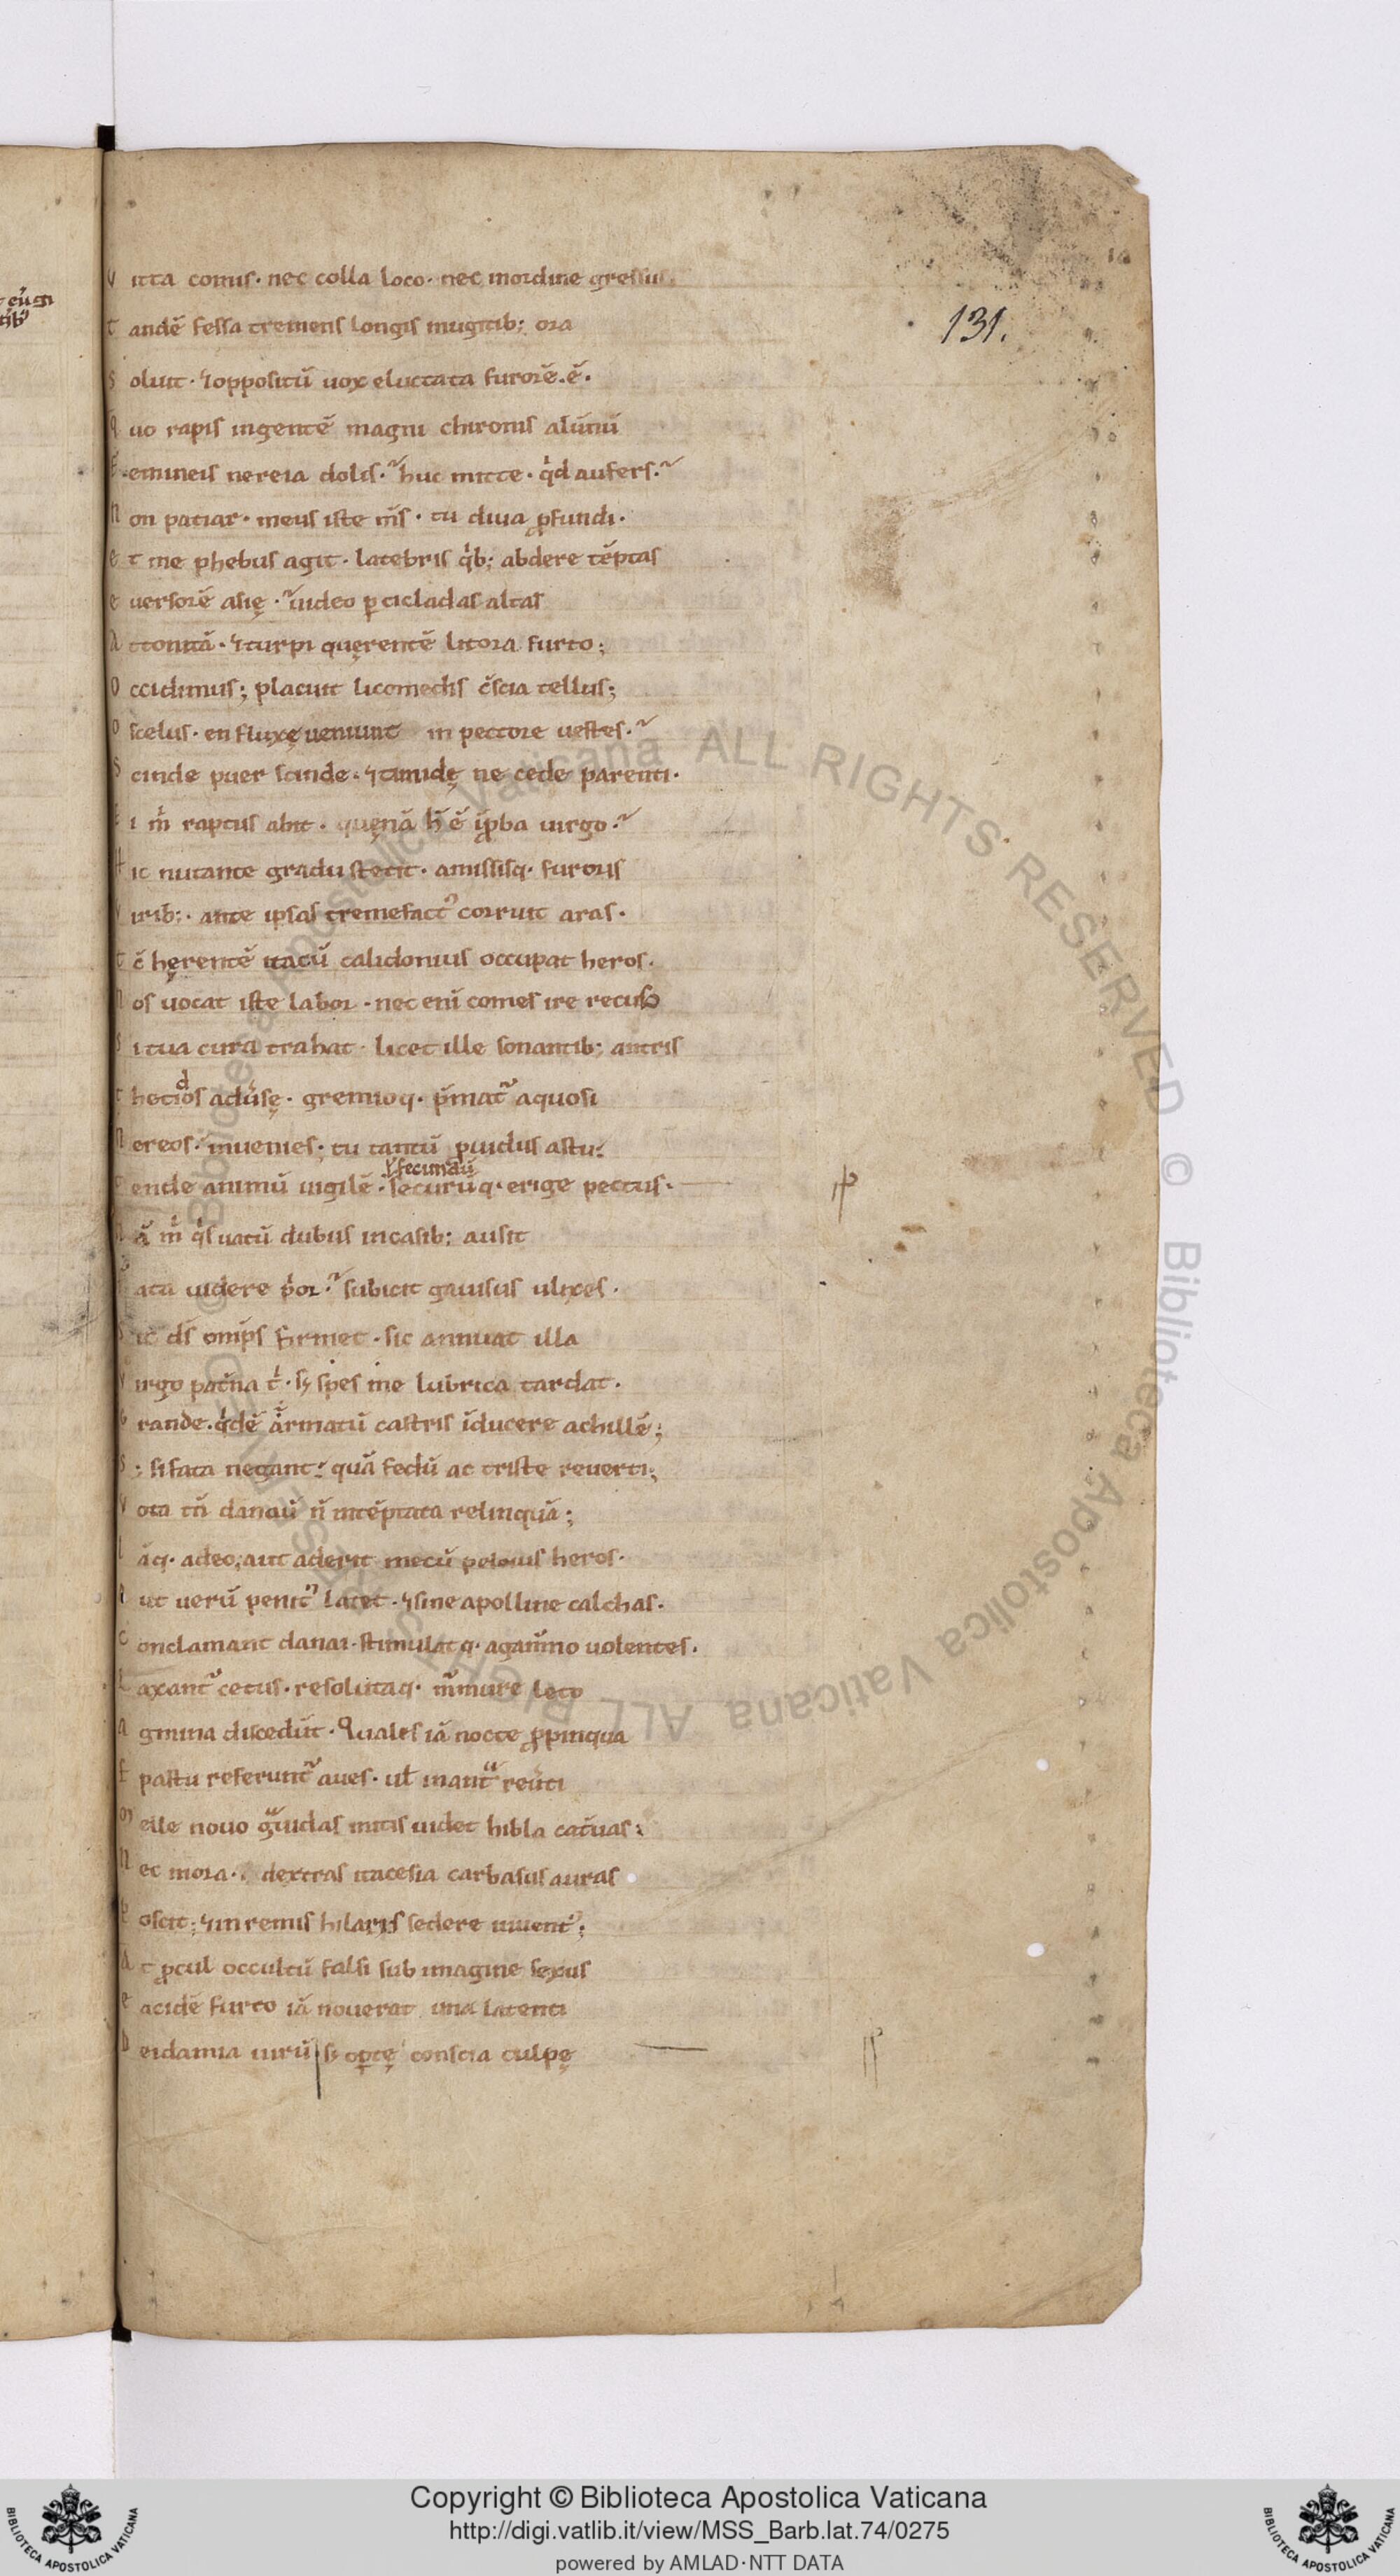 V itta comis· nec colla loco· nec inordine gressus
t andē fessa tremens longis mugitib; ora
s oluit· ⁊oppositū uox eluctata furorē.ē.
q uo rapis ingentē magni chironis alūnū
F emineis nereia dolis· huc mitte· qͥd aufers·
n on patiar· meus iste m̄s· tu diua ꝓfundi·
e t me phebus agit· latebris qͥb; abdere tēptas
e uersorē asię· uideo ꝑ cicladas altas
A ttonitā· ⁊turpi quęrentē litora furto;
O ccidimus; placuit licomedis c̄scia tellus;
O scelus· en fluxę ueniunt in pectore uestes·
S cinde puer scinde· ⁊timidę ne cede parenti·
E i mͥ raptus abit· quęnā h̄ ē īꝓba uirgo·
H ic nutante gradu stetit· amissisq· furoris
V irib;· ante ipsas tremefactꝰ corruit aras·
t c̄ hęrentē itacū calidonius occupat heros·
N os uocat iste labor· nec eni comes ire recuso
S i tua cura trahat· licet ille sonantib; antris
t hetidos aduͥsę· gremioq· p̄mat᷑ aquosi
N ereos· inuenies· tu tantū ꝓuidus astu
t ende animū uigilē· ł fecundū securūq· erige pectus·
N ā mͥ qͥs uatū dubiis incasib; ausit
F ata uidere pͥor· subicit gauisus ulixes·
S ic ds̄ omīps firmet· sic annuat illa
V irgo pat̄na t̄· sȝ spes me lubrica tardat·
G rande· qͥdē armatū castris īducere achillē;
S ; si fata negant· quā fedū ac triste reuerti;
V ota tn̄ danaū n̄ intēptata relinquā;
I āq· adeo, aut aderit mecū peleius heros·
A ut uerū penitꝰ latet· ⁊sine apolline calchas·
C onclamant danai· stimulatq· agam̄no uolentes·
L axant᷑ cetus· resolutaq· m᷑mure leto
A gmina discedūt· Quales iā nocte ꝓpinqua
E pastu referunt᷑ aues· uł inantͣ reūti
M elle nouo gͣuidas mitis uidet hibla cat̄uas;
N ec mora· dextras itacesia carbasus auras
P oscit; ⁊in remis hilares sedere iuuent᷑;
A t ꝓcul occultū falsi sub imagine sexus
e acidē furto iā nouerat una latenti
D eidamia uirū sȝ oꝑtę conscia culpę
131.
Copyright © Biblioteca Apostolica Vaticana
http://digi.vatlib.it/view/MSS_Barb.lat.74/0275
powered by AMLAD·NTT DATA